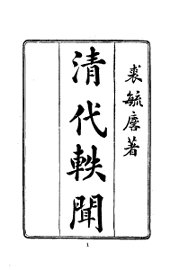 裘毓麐著
清代軼聞
1